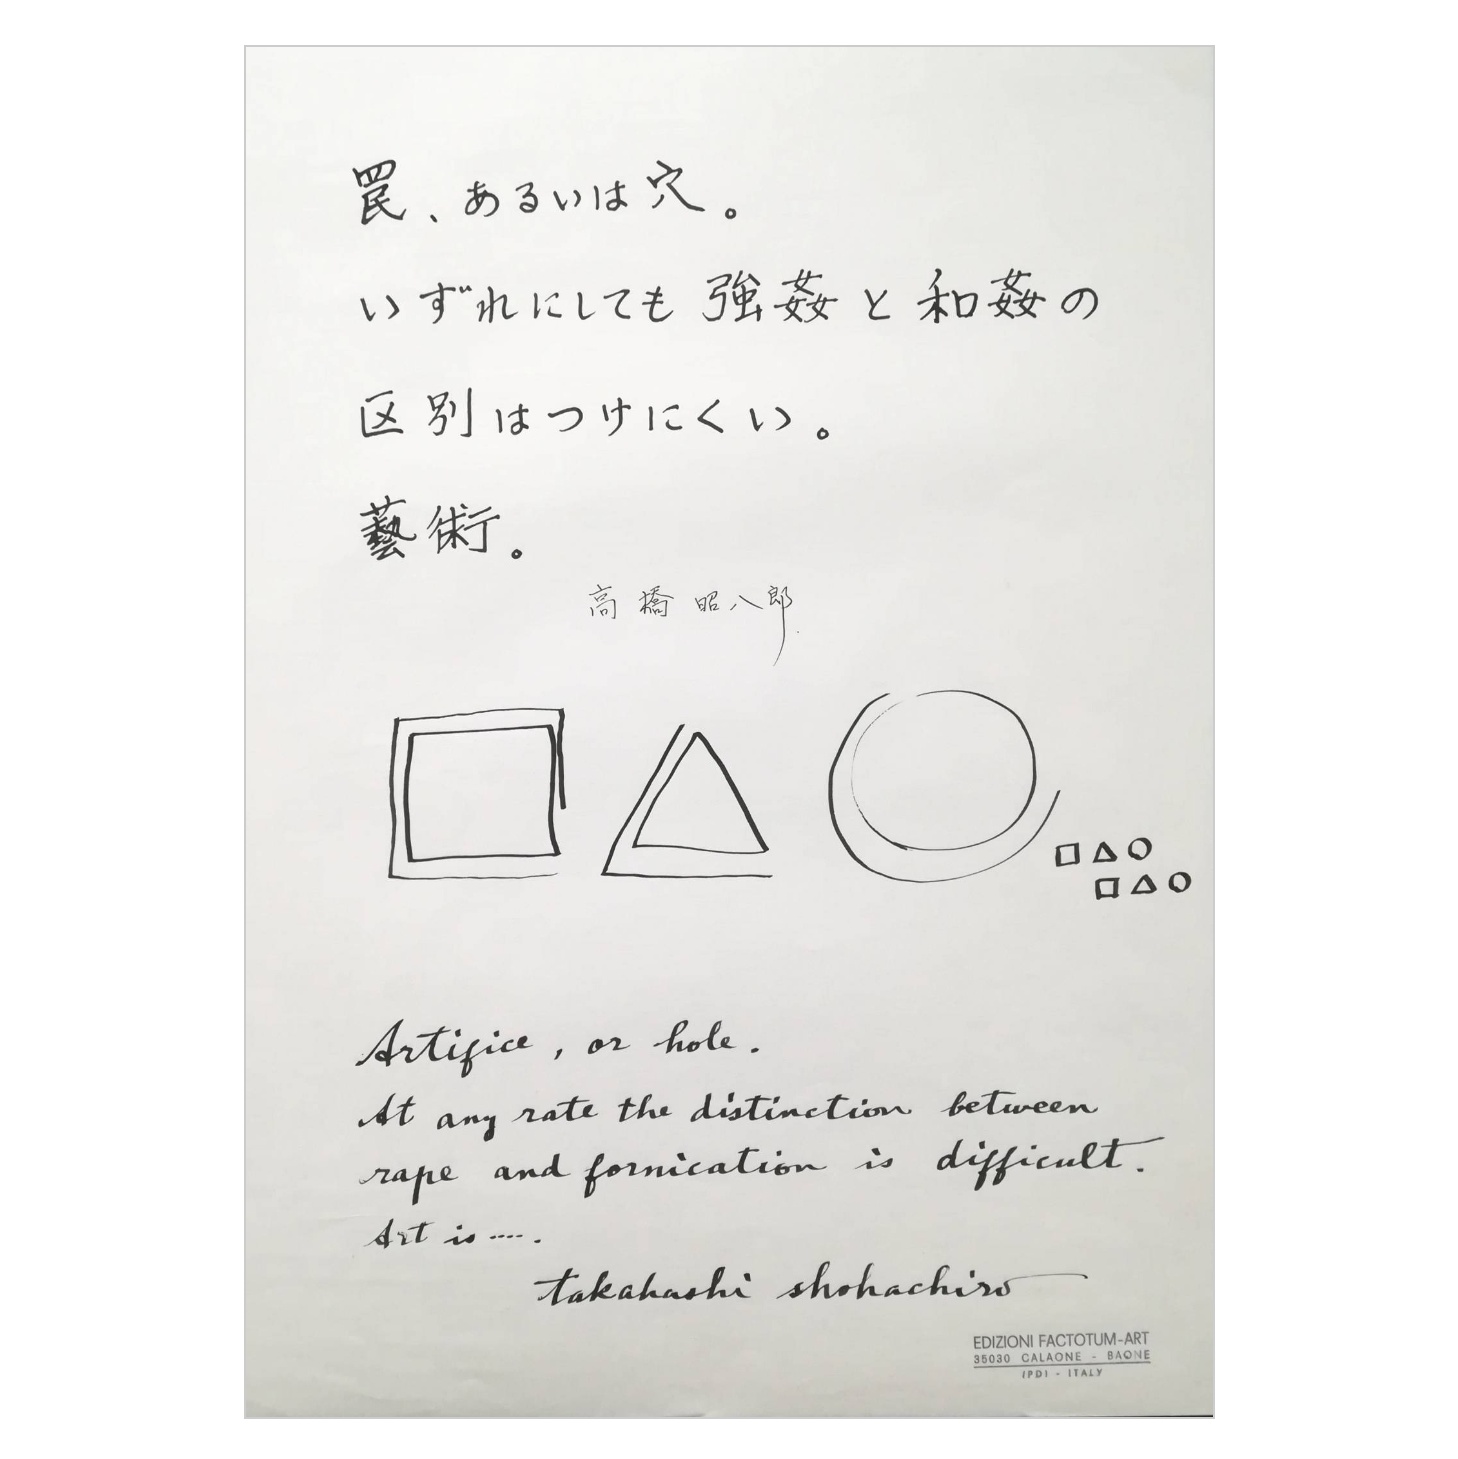 罠、あるいは穴。
いずれにしても強姦と和姦の
区別はつけにくい。
藝術。
高橋昭八郎
Artifice, or hole.
At any rate the distinction between
rape and fornication is difficult.
Art is ·····.
takahashi shohachiro
EDIZIONI FACTOTUM-ART
35030 CALAONE - BAONE
(PD) - ITALY